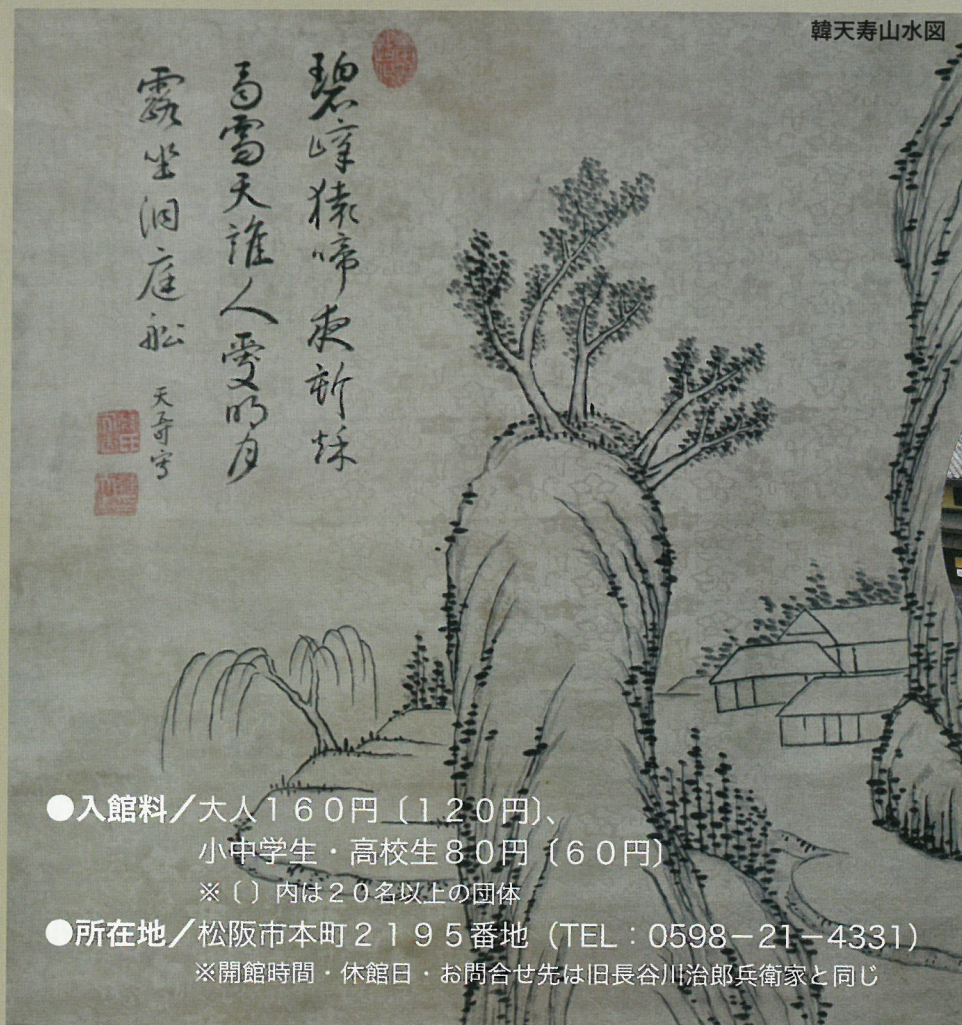 韓天寿山水図
碧嶂猿啼夜新秌
雨霽天誰人愛明月
露坐洞庭舩
天寿写
●入館料／大人１６０円〔１２０円〕、
小中学生・高校生８０円〔６０円〕
※〔 〕内は２０名以上の団体
●所在地／松阪市本町２１９５番地（TEL：0598－21－4331）
※開館時間・休館日・お問合せ先は旧長谷川治郎兵衛家と同じ